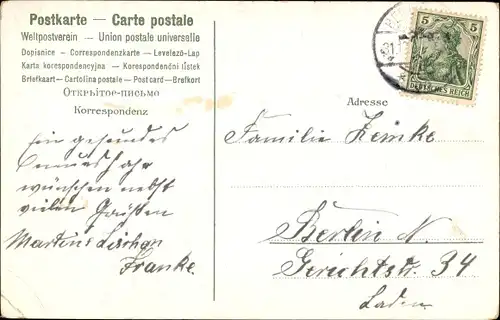 Postkarte — Carte postale
Weltpostverein — Union postale universelle
Dopisnice - Correspondenzkarte - Levelező-Lap
Karta korespondencyjna - Korespondenční lístek
Briefkaart - Cartolina postale - Postcard - Brefkort
Открытое-письмо
Korrespondenz
Ein gesundes
neues Jahr
wünschen nebst
vielen Grüßen
Martin
Franke.
5 5
DEUTSCHES REICH
31.
Adresse
Familie Zemke
Berlin N.
Gerichtstr. 34
Laden.